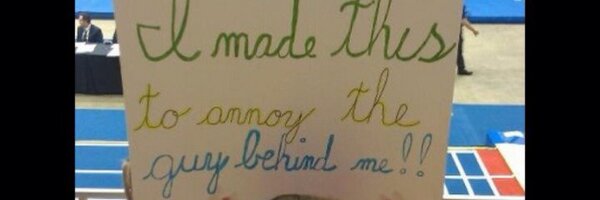 I made this
to annoy the
guy behind me!!